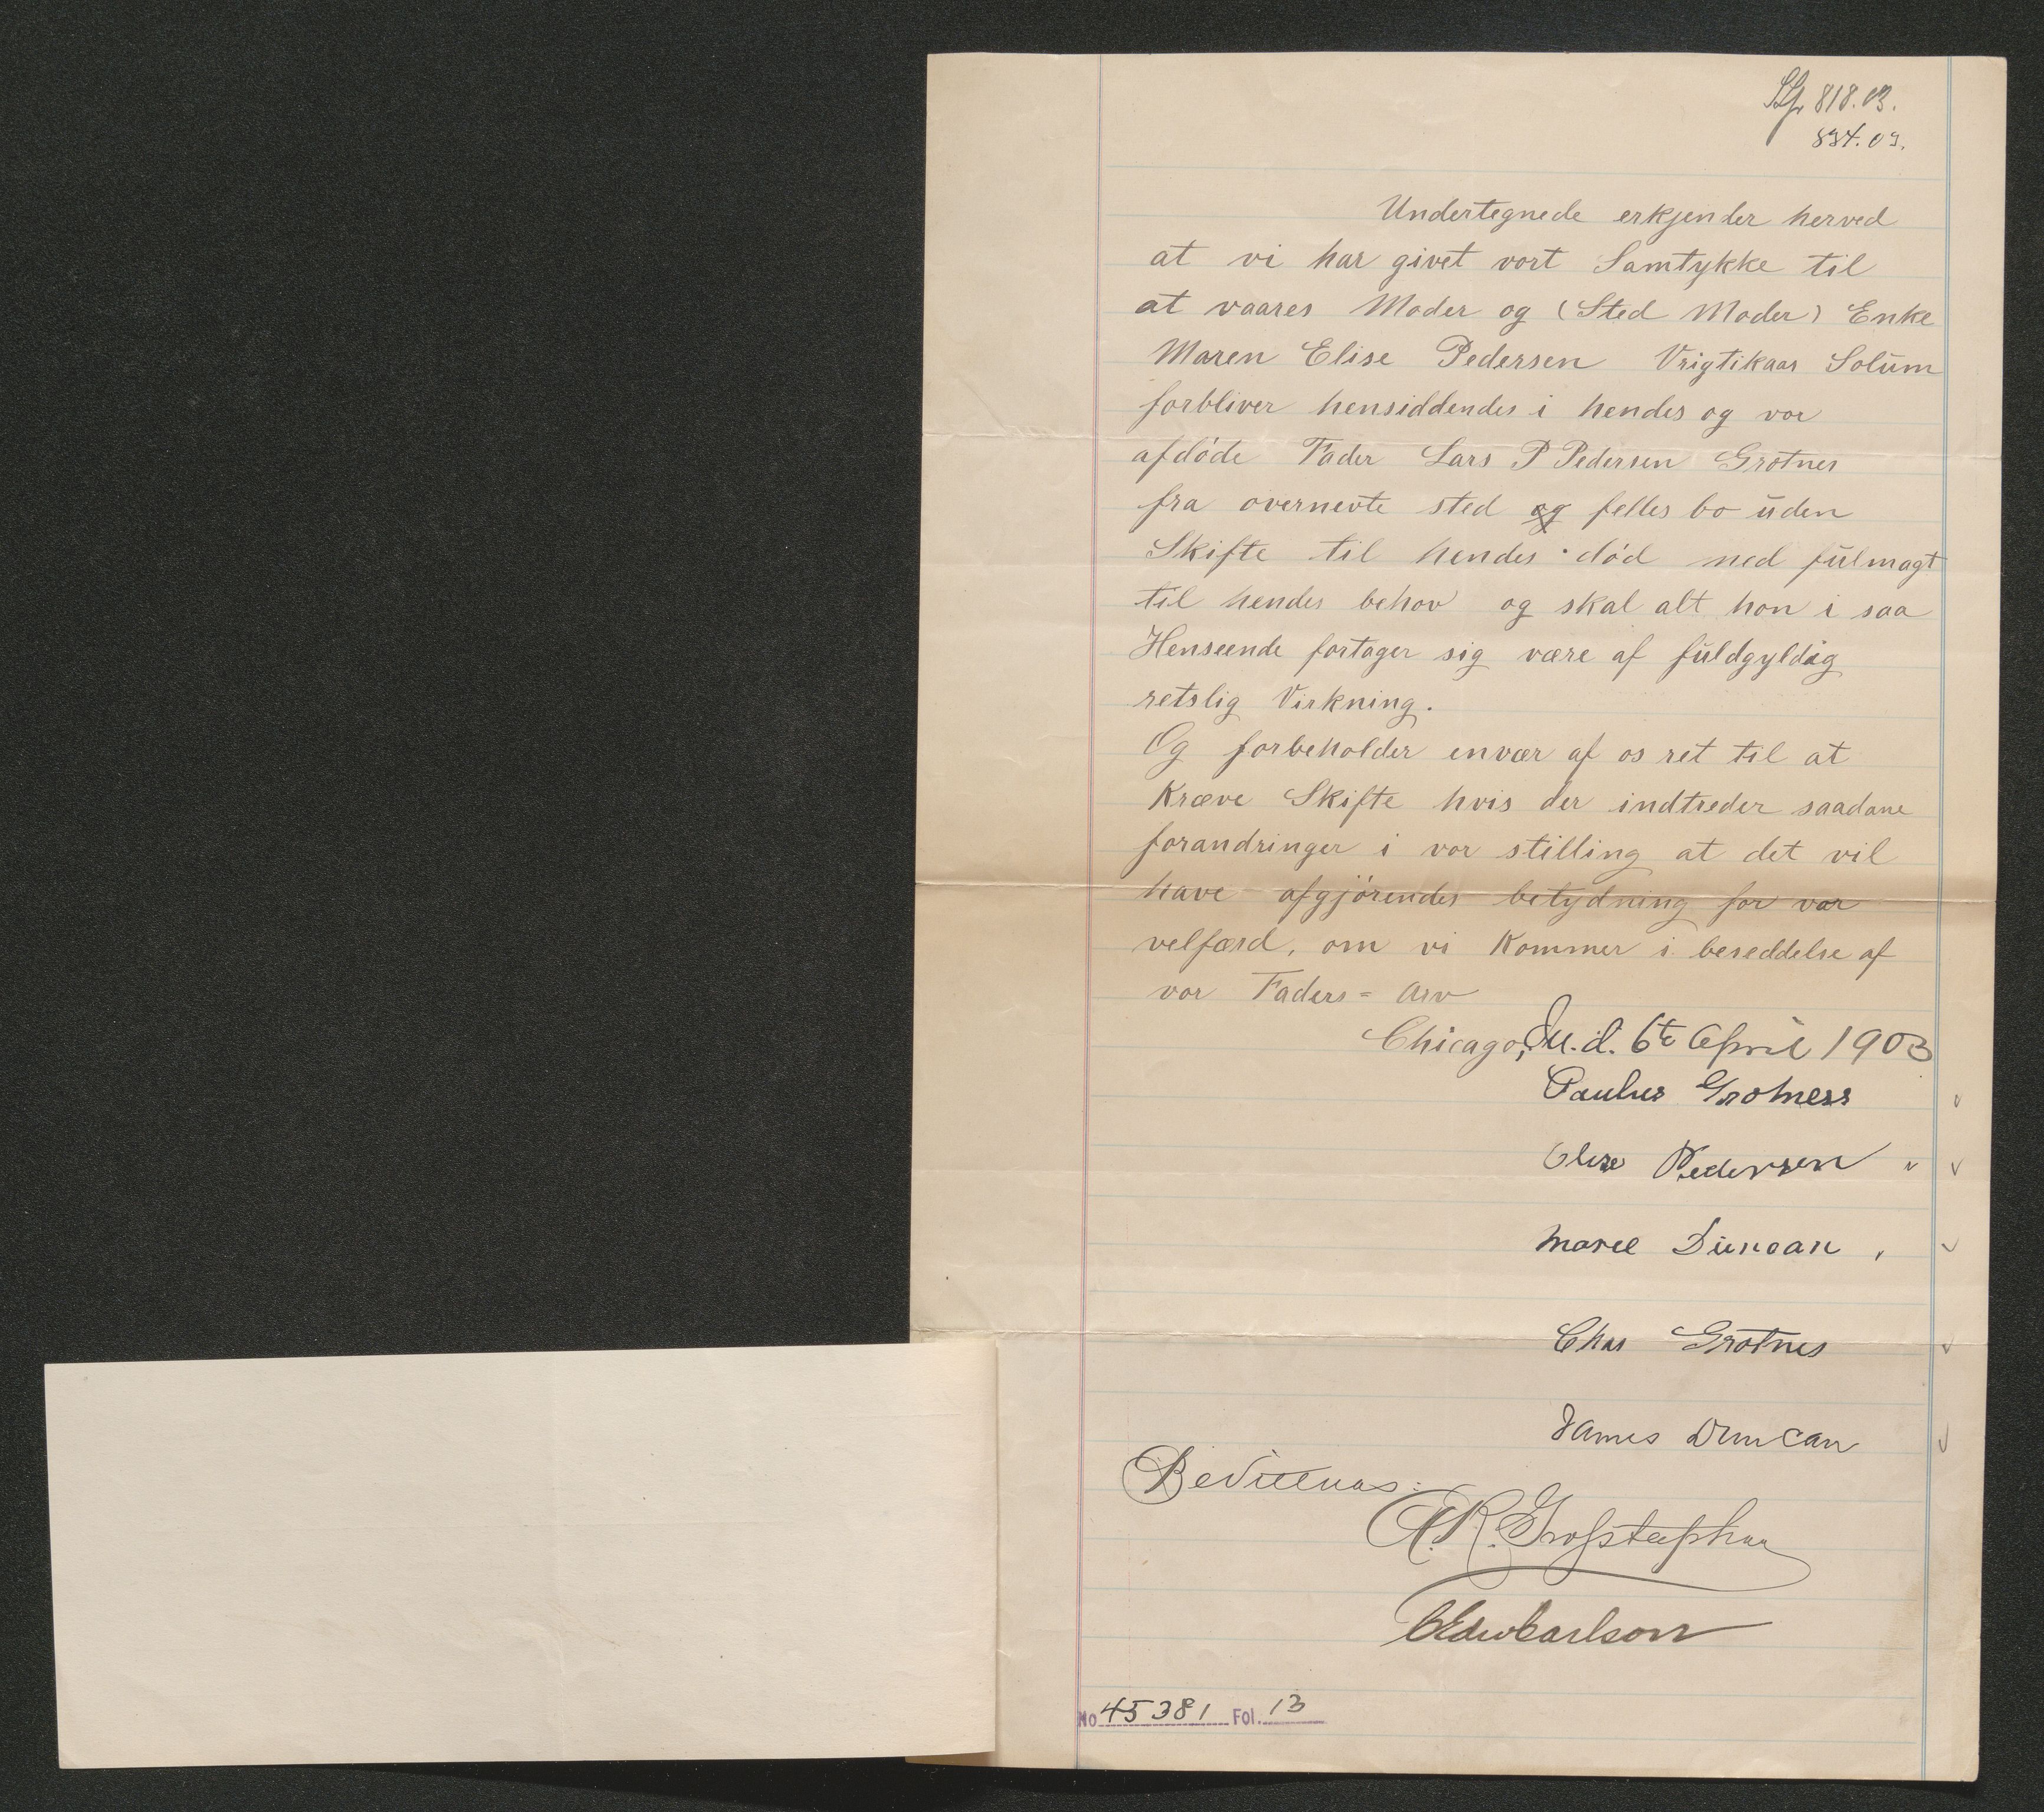 818.03.
834.03.
Undertegnede erkjender herved
at vi har givet vort Samtykke til
at vaares Moder og (Sted Moder) Enke
Maren Elise Pedersen Vrigtikaar Solum
forbliver hensiddendes i hendes og vor
afdöde Fader Lars P Pedersen Grotnes
fra overnevte sted og felles bo uden
Skifte til hendes död med fulmagt
til hendes behov og skal alt hon i saa
Henseende fortager sig være af fuldgyldig
retslig Virkning.
Og forbeholder envær af os ret til at
Kræve Skifte hvis der indtreder saadane
forandringer i vor stilling at det vil
have afgjörendes betydning for vor
velfærd, om vi Kommer i beseddelse af
vor Faders = Arv
Chicago, Ill. d. 6te April 1903
Paulus Grotness
Olise Pedersen
Marie Duncan
Chas Grotnes
James Duncan
Bevitnas:
A.R.
Edw Carlson
No 45381 Fol. 13